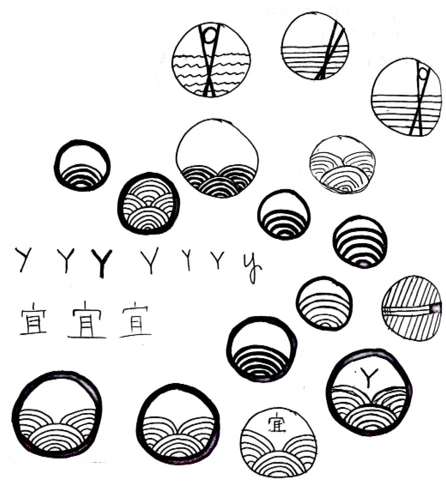 Y Y Y Y Y Y y
宜 宜 宜
Y
宜